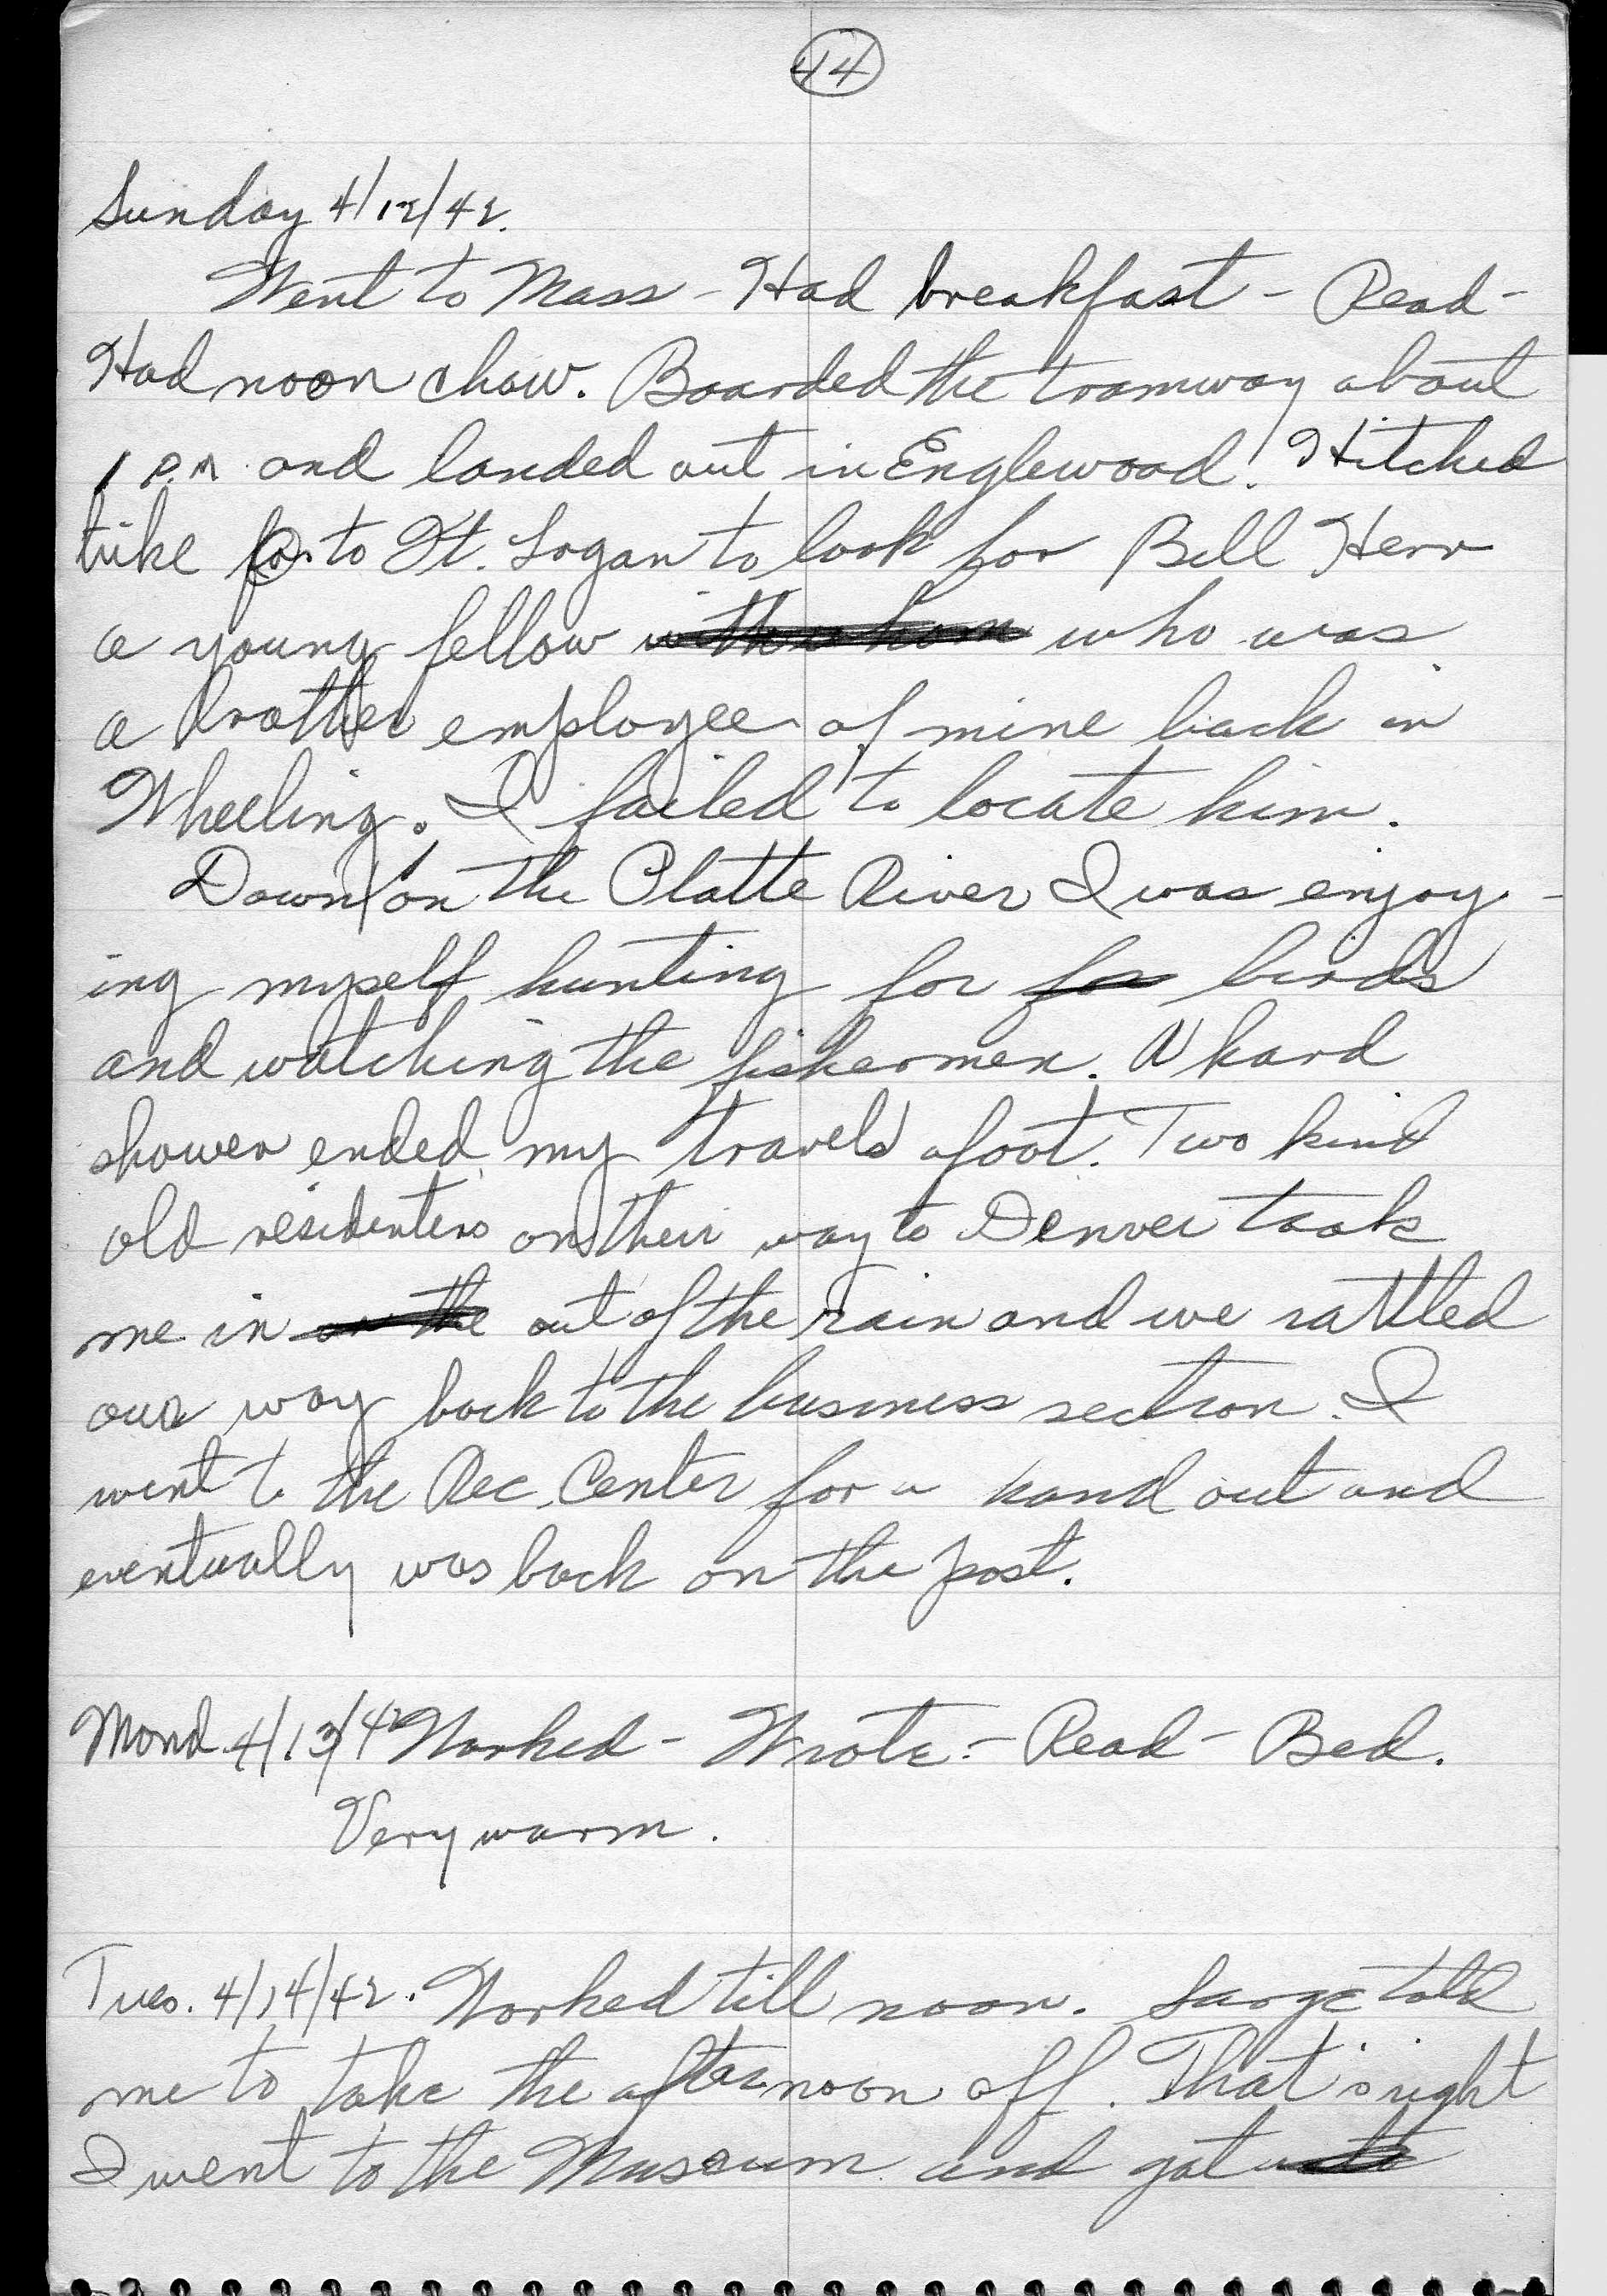 44
Sunday 4/12/42.
Went to Mass - Had breakfast - Read -
Had noon chow. Boarded the tramway about
1 P.M. and landed out in Englewood. Hitched
hike to Ft. Logan to look for Bill Herr
a young fellow with whom who was
a brother employee of mine back in
Wheeling. I failed to locate him.
Down on the Platte River I was enjoy-
ing myself hunting for for birds
and watching the fishermen. A hard
shower ended my travels afoot. Two kind
old residenters on their way to Denver took
me in out of the rain and we rattled
our way back to the business section. I
went to the Rec. Center for a hand out and
eventually was back on the post.
Mond. 4/13/42 Worked - Wrote - Read - Bed.
Very warm.
Tues. 4/14/42. Worked till noon. Sarge told
me to take the afternoon off. That's right
I went to the Museum and got